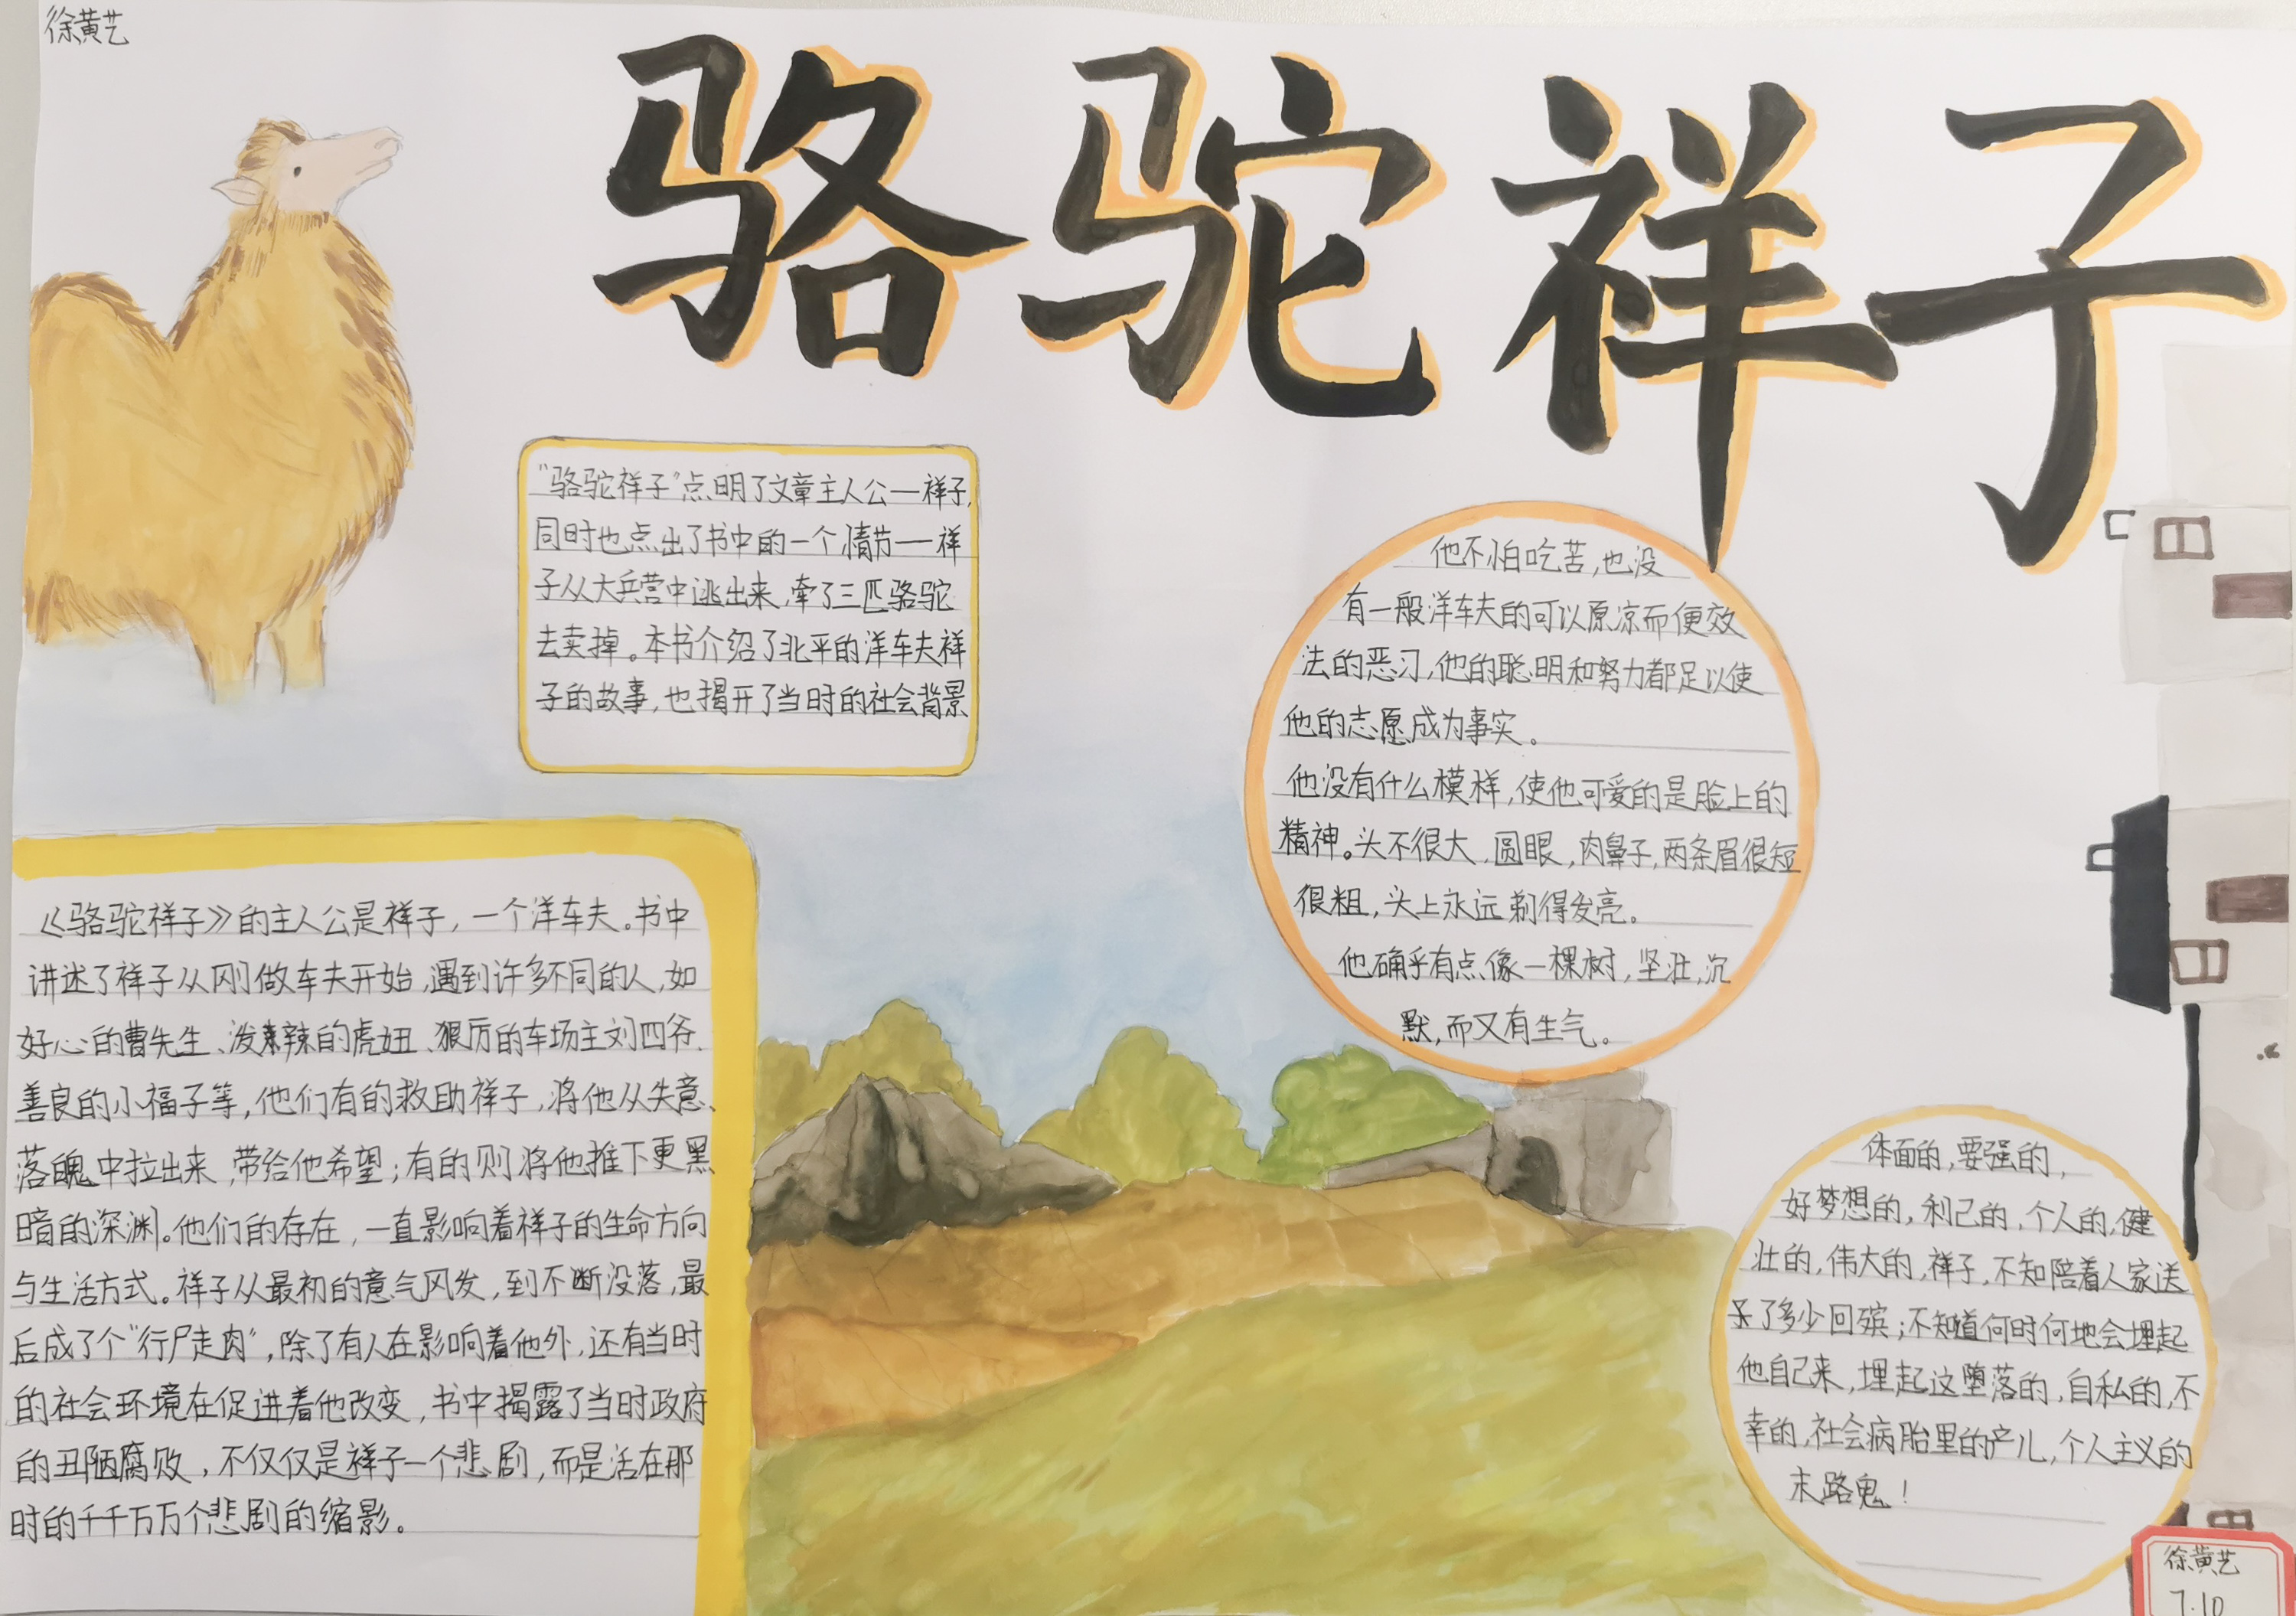 徐黄艺
骆驼祥子
"骆驼祥子"点明了文章主人公—祥子,
同时也点出了书中的一个情节——祥
子从大兵营中逃出来,牵了三匹骆驼
去卖掉。本书介绍了北平的洋车夫祥
子的故事,也揭开了当时的社会背景
他不怕吃苦,也没
有一般洋车夫的可以原凉而便效
法的恶习,他的聪明和努力都足以使
他的志愿成为事实。
他没有什么模样,使他可爱的是脸上的
精神。头不很大,圆眼,肉鼻子,两条眉很短
很粗,头上永远剃得发亮。
他确乎有点像一棵树,坚壮,沉
默,而又有生气。
《骆驼祥子》的主人公是祥子,一个洋车夫。书中
讲述了祥子从刚做车夫开始,遇到许多不同的人,如
好心的曹先生、泼辣的虎妞、狠厉的车场主刘四爷、
善良的小福子等,他们有的救助祥子,将他从失意、
落魄中拉出来,带给他希望;有的则将他推下更黑
暗的深渊。他们的存在,一直影响着祥子的生命方向
与生活方式。祥子从最初的意气风发,到不断没落,最
后成了个"行尸走肉",除了有人在影响着他外,还有当时
的社会环境在促进着他改变,书中揭露了当时政府
的丑陋腐败,不仅仅是祥子一个悲剧,而是活在那
时的千千万万个悲剧的缩影。
体面的,要强的,
好梦想的,利己的,个人的,健
壮的,伟大的,祥子,不知陪着人家送
了多少回殡;不知道何时何地会埋起
他自己来,埋起这堕落的,自私的,不
幸的,社会病胎里的产儿,个人主义的
末路鬼!
徐黄艺
7.10